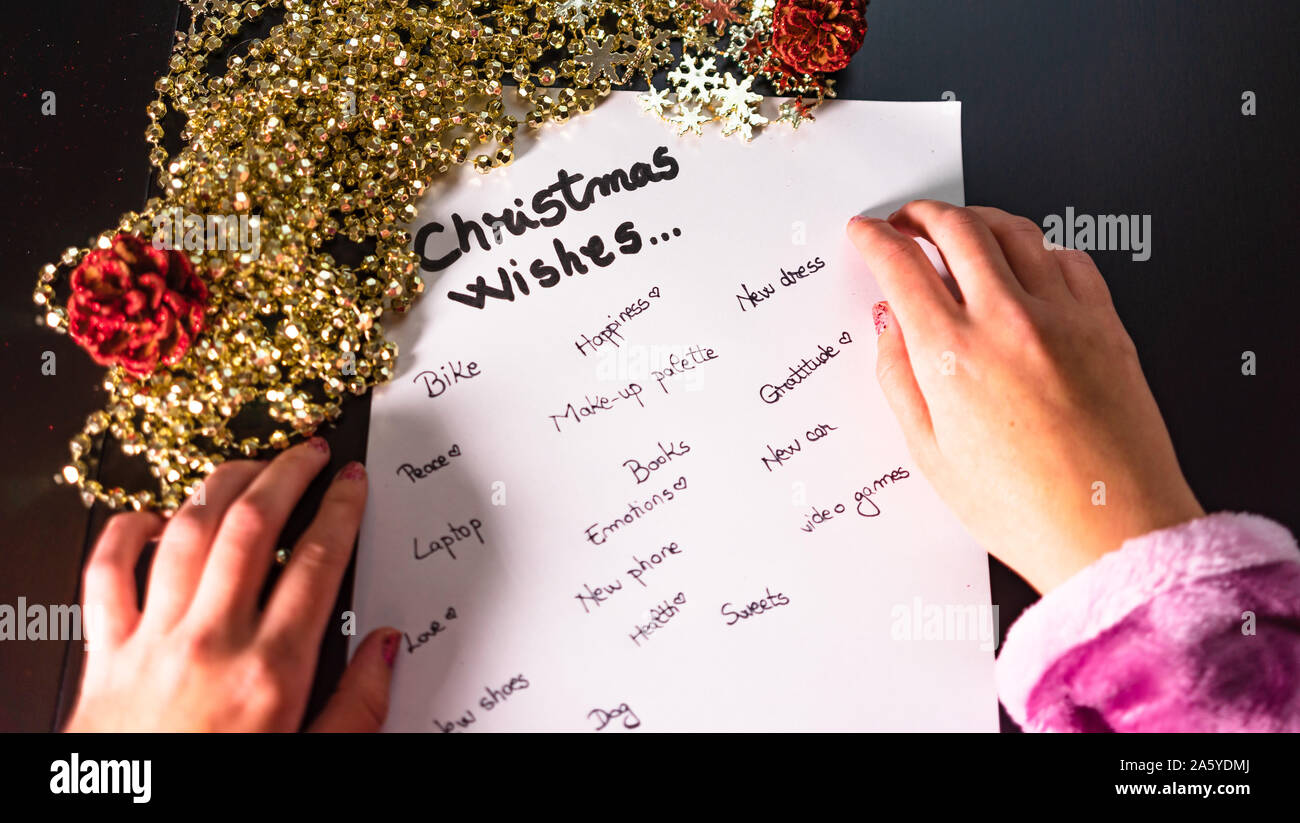 Christmas
Wishes...
Bike
Peace♡
Laptop
Love♡
New shoes
Happiness♡
Make-up palette
Books
Emotions♡
New phone
Health♡
Dog
New dress
Gratitude♡
New car
video games
Sweets
a
alamy
alamy
a
a
a
alamy
Image ID: 2A5YDMJ
www.alamy.com